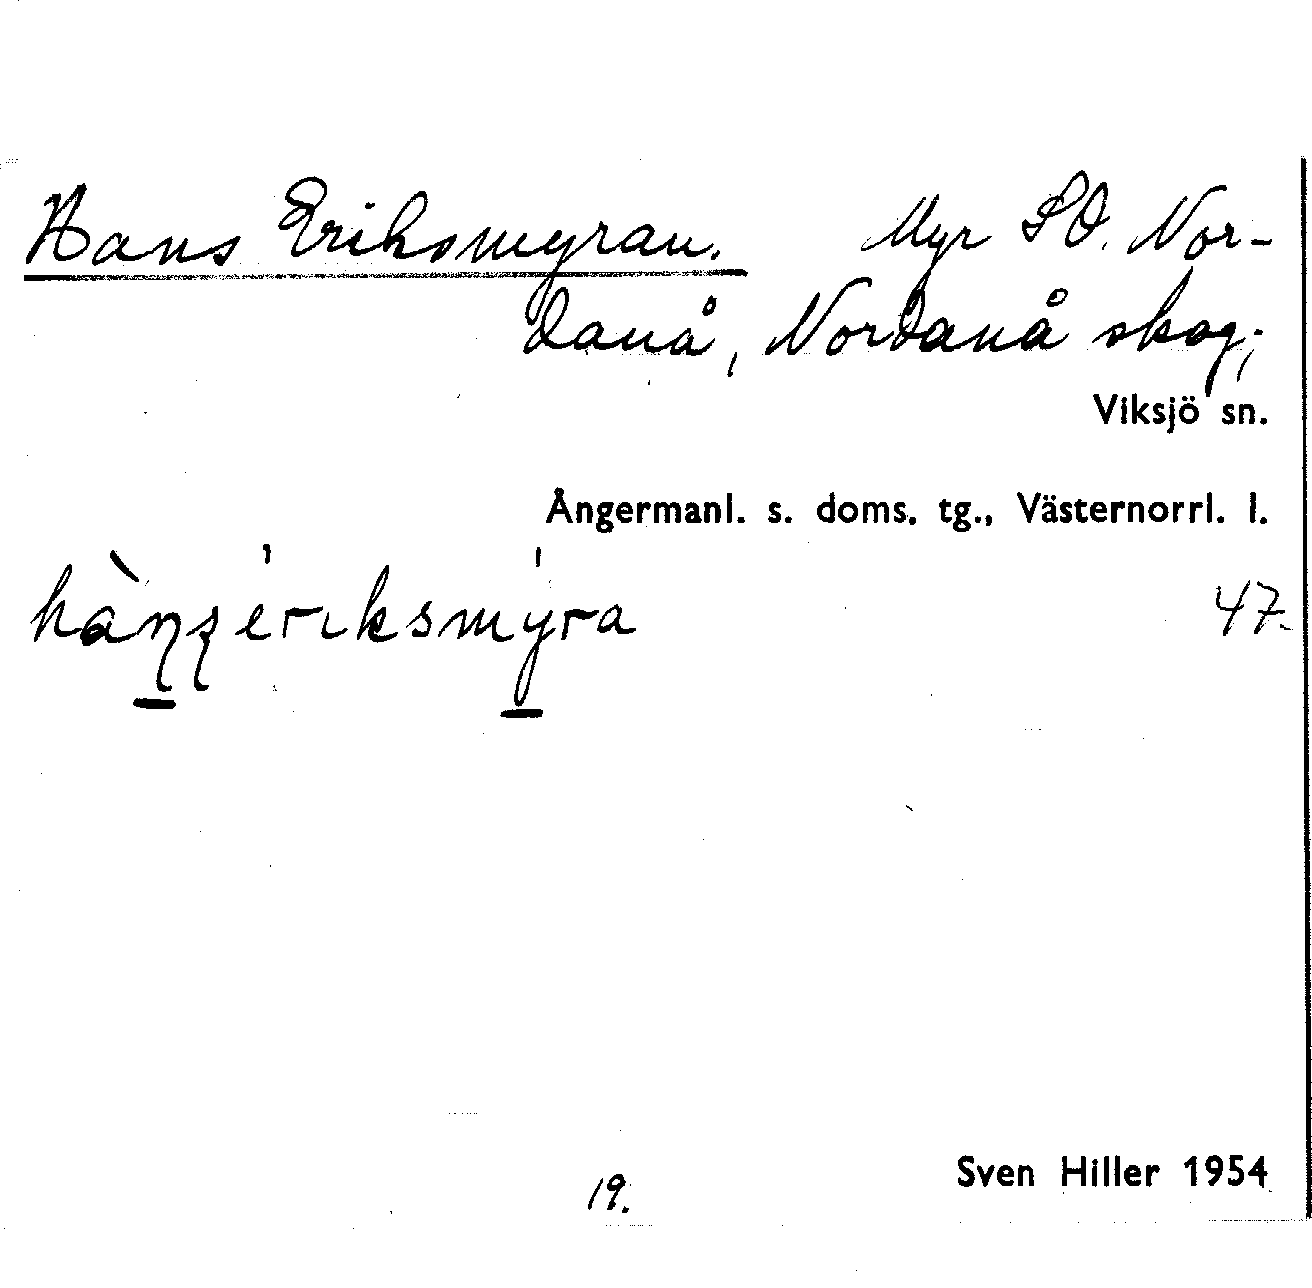 Hans Eriksmyran. Myr SO. Nor-
danå, Nordanå skog;
Viksjö sn.
Ångermanl. s. doms. tg., Västernorrl. l.
47.
19.
Sven Hiller 1954